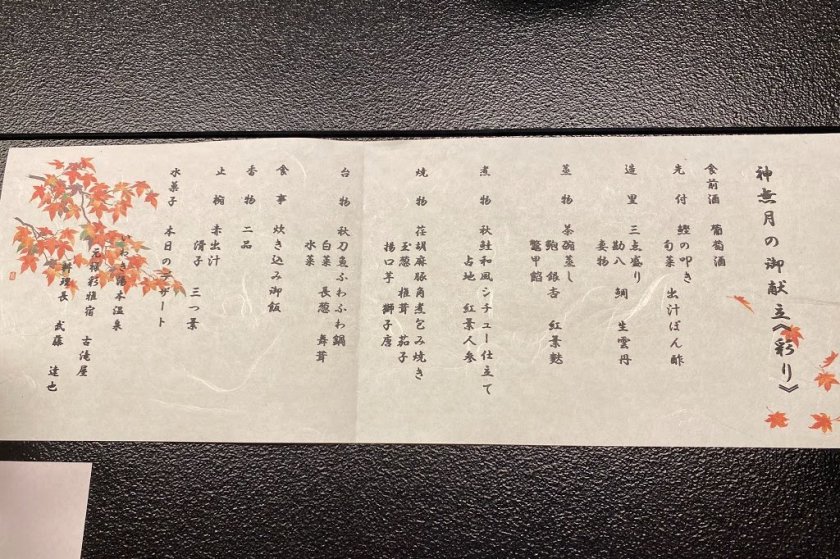 神無月の御献立《彩り》
食前酒 葡萄酒
先付 鰹の叩き
旬菜 出汁ぽん酢
造里 三点盛り
勘八 鯛 生雲丹
妻物
蒸物 茶碗蒸し
鮑 銀杏 紅葉麩
鼈甲餡
煮物 秋鮭和風シチュー仕立て
占地 紅葉人参
焼物 荏胡麻豚角煮包み焼き
玉葱 椎茸 茄子
揚口芋 獅子唐
台物 秋刀魚ふわふわ鍋
白菜 長葱 舞茸
水菜
食事 炊き込み御飯
香物 二品
止椀 赤出汁
滑子 三つ葉
水菓子 本日のデザート
いわき湯本温泉
元禄彩雅宿 古滝屋
料理長 武藤 達也